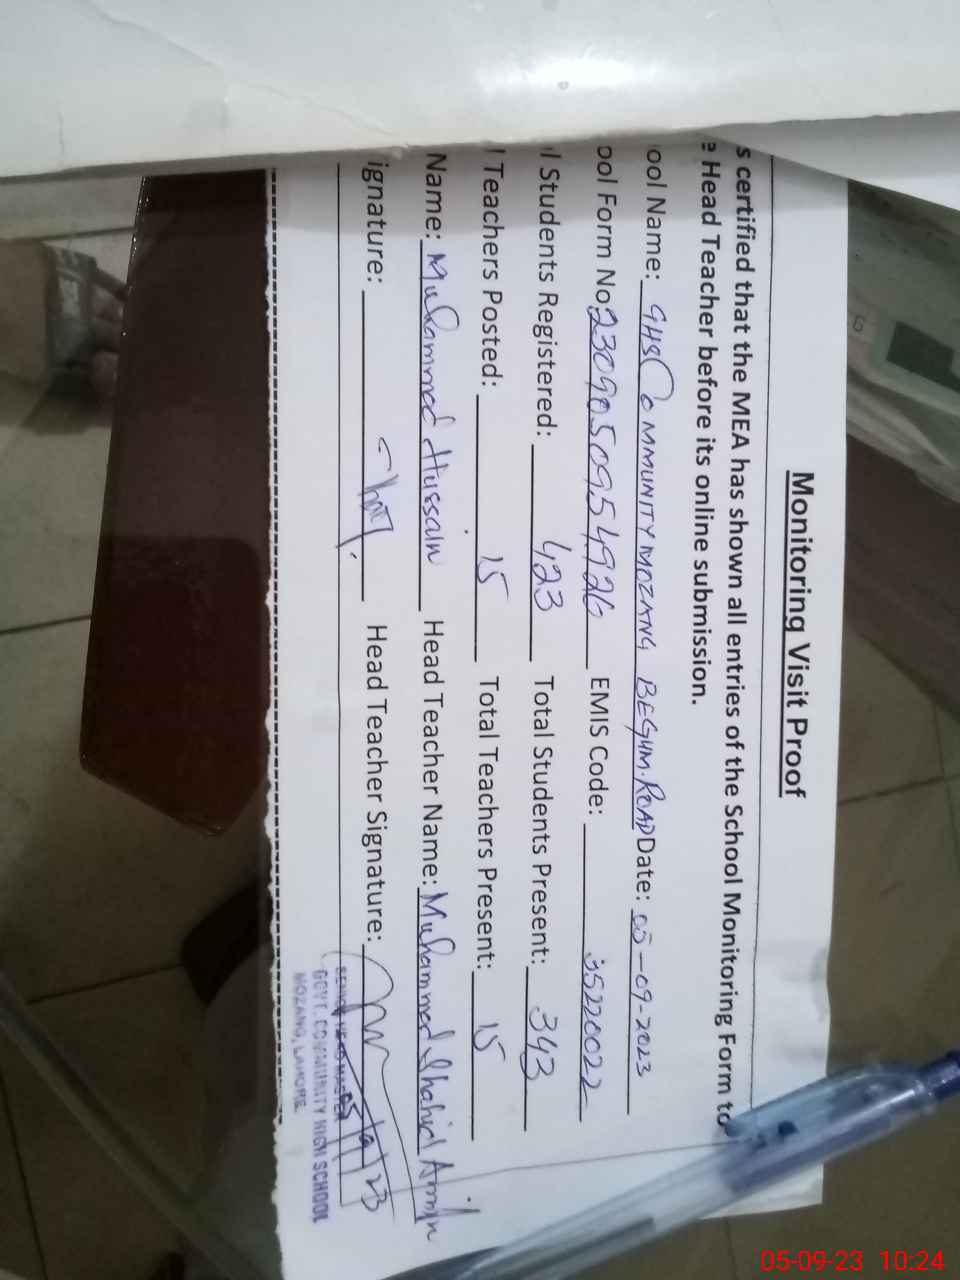 Monitoring Visit Proof
s certified that the MEA has shown all entries of the School Monitoring Form to
e Head Teacher before its online submission.
ool Name: GHS COMMUNITY MOZANG BEGUM.ROAD Date: 05-09-2023
ool Form No 2309050954926 EMIS Code: 35220022
l Students Registered: 423 Total Students Present: 343
l Teachers Posted: 15 Total Teachers Present: 15
Name: Muhammad Hussain Head Teacher Name: Muhammad Shahid Amin
ignature: Head Teacher Signature:
/9/23
SENIOR HEAD MASTER
GOVT. COMMUNITY HIGH SCHOOL
MOZANG, LAHORE.
05-09-23 10:24